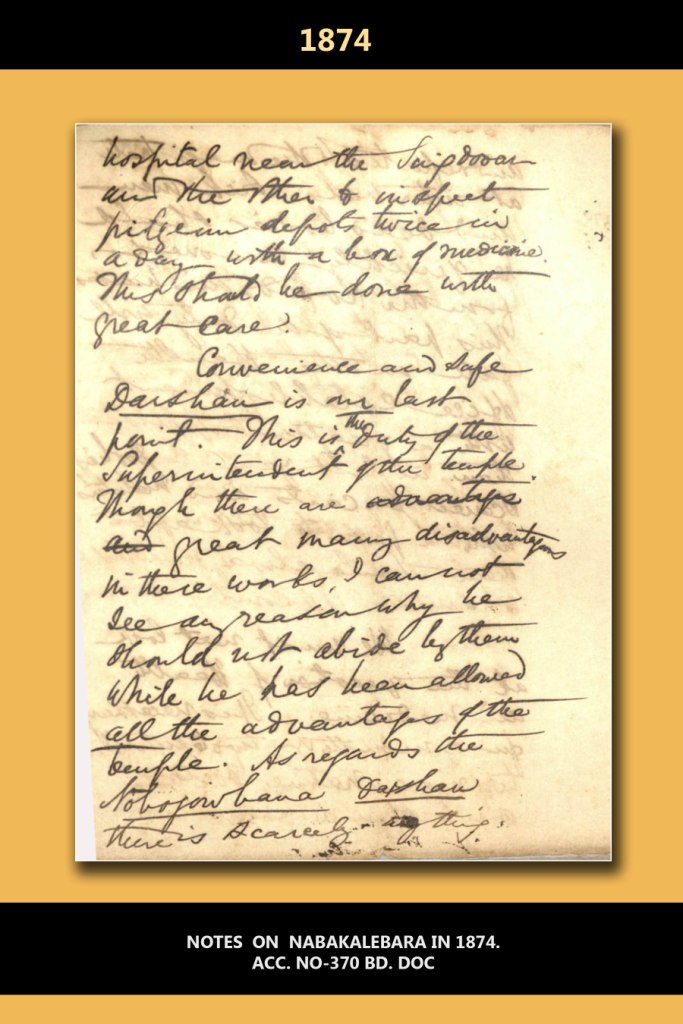 1874
hospital near the Singdooar
and the other to inspect
pilgrim depots twice in
a day with a box of medicine.
This should be done with
great care.
Convenience and safe
Darshan is our last
point. This is the duty of the
Superintendent of the temple.
Though there are advantages
and great many disadvantages
in these works, I cannot
see any reason why he
should not abide by them
while he has been allowed
all the advantages of the
temple. As regards the
Nobojowbana Darshan
there is scarcely anything.
NOTES ON NABAKALEBARA IN 1874.
ACC. NO-370 BD. DOC